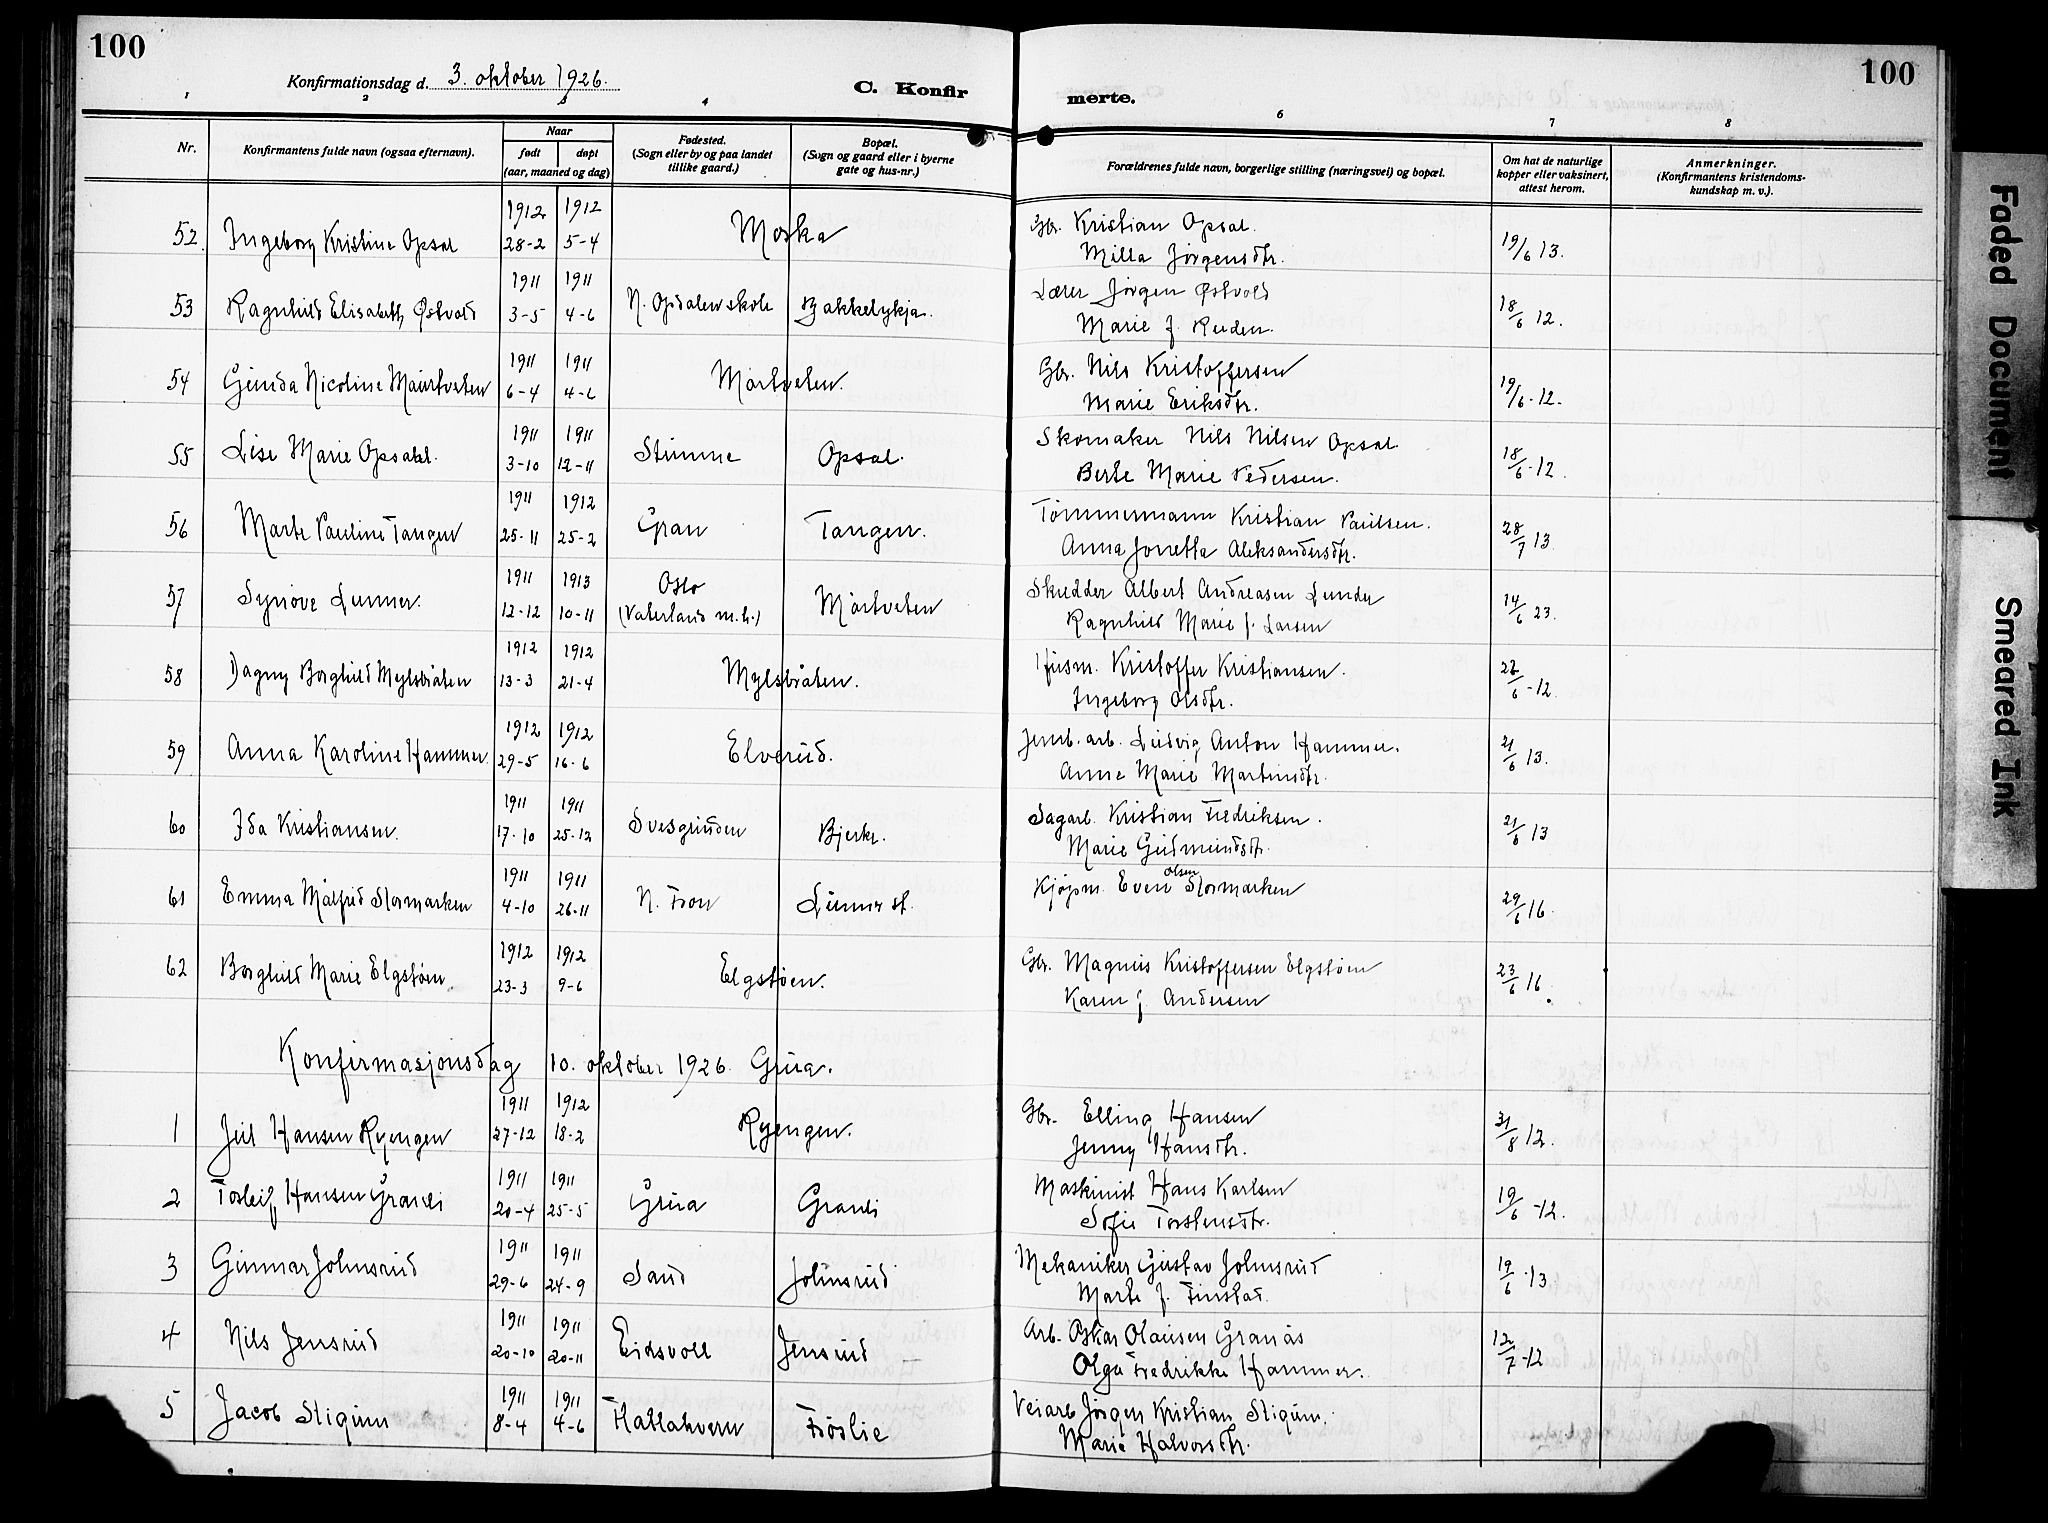 100
Konfirmationsdag d. 3. oktober 1926.
C. Konfirmerte.
100
1 2 3 4 5 6 7 8
Nr.
Konfirmantens fulde navn (ogsaa efternavn).
Naar
født døpt
(aar, maaned og dag)
Fødested.
(Sogn eller by og paa landet
tillike gaard.)
Bopæl.
(Sogn og gaard eller i byerne
gate og hus-nr.)
Forældrenes fulde navn, borgerlige stilling (næringsvei) og bopæl.
Om hat de naturlige
kopper eller vaksinert,
attest herom.
Anmerkninger.
(Konfirmantens kristendoms-
kundskap m. v.).
1912 1912 Gbr. Kristian Opsal.
52. Ingeborg Kristine Opsal 28-2 5-4 Moska Milla Jørgensdtr. 19/6 13.
1911 1911 Lærer Jørgen Østvold
53 Ragnhild Elisabeth Østvold 3-5 4-6 N. Opdalen skole Bakkelykja. Marie f. Ruden. 18/6 12.
1911 1911 Gbr. Nils Kristoffersen
54 Gunda Nicoline Maurtveten 6-4 4-6 Mörtveten. Marie Eriksdtr. 19/6-12.
1911 1911 Skomaker Nils Nilsen Opsal
55 Lise Marie Opsahl. 3-10 12-11 Stumne Opsal. Berte Marie Pedersen. 18/6-12.
1911 1912 Tömmermann Kristian Paulsen.
56 Marte Pauline Tangen 25-11 25-2 Gran Tangen. Anna Jonetta Aleksandersdtr. 28/7 13.
1911 1913 Oslo Skredder Albert Andreasen Lunder
57 Synöve Lunner. 12-12 10-11 (Vaterland m.h.) Mörtveten Ragnhild Marie f. Larsen 14/6 23.
1912 1912 Husm. Kristoffer Kristiansen.
58 Dagny Borghild Mylsbråten 13-3 21-4 Mylsbråten. Ingeborg Olsdtr. 22/6-12.
1912 1912 Jernb. arb. Ludvig Anton Hammer.
59 Anna Karoline Hammer. 29-5 16-6 Elverud. Anne Marie Martinsdtr. 21/6 13.
1911 1911 Sagarb. Kristian Fredriksen.
60 Ida Kristiansen. 17-10 25-12 Svesgruden Bjerke. Marie Gudmundsdtr. 21/6 13
1911 1911 Kjøpm. Even Olsen Stormarken
61 Emma Målfrid Stormarken 4-10 26-11 N. Fron Lunner st. 29/6 16.
1912 1912 Gbr. Magnus Kristoffersen Elgstöen
62 Borghild Marie Elgstöen. 23-3 9-6 Elgstöen. Karen f. Andersen 23/6 16.
Konfirmasjonsdag 10. oktober 1926. Grua.
1911 1912 Gbr. Elling Hansen
1 Juel Hansen Ryengen 27-12 18-2 Ryengen. Jenny Hansdtr. 31/8 12.
1911 1911 Maskinist Hans Karlsen
2 Torleif Hansen Granli 20-4 25-5 Grua Granli Sofie Torstensdtr. 19/6-12.
1911 1911 Mekaniker Gustav Johnsrud
3 Gunnar Johnsrud 29-6 24-9 Sand Johnsrud Marte f. Finstad. 19/6-13
1911 1911 Arb. Oskar Olausen Granås
4 Nils Jensrud 20-10 20-11 Eidsvoll Jensrud Olga Fredrikke Hammer. 12/7-12
1911 1911 Veiarb Jörgen Kristian Stigum.
5 Jacob Stigum 8-4 4-6 Hattakvern Fröslie Marie Halvorsdtr.
Faded Document
Smeared Ink